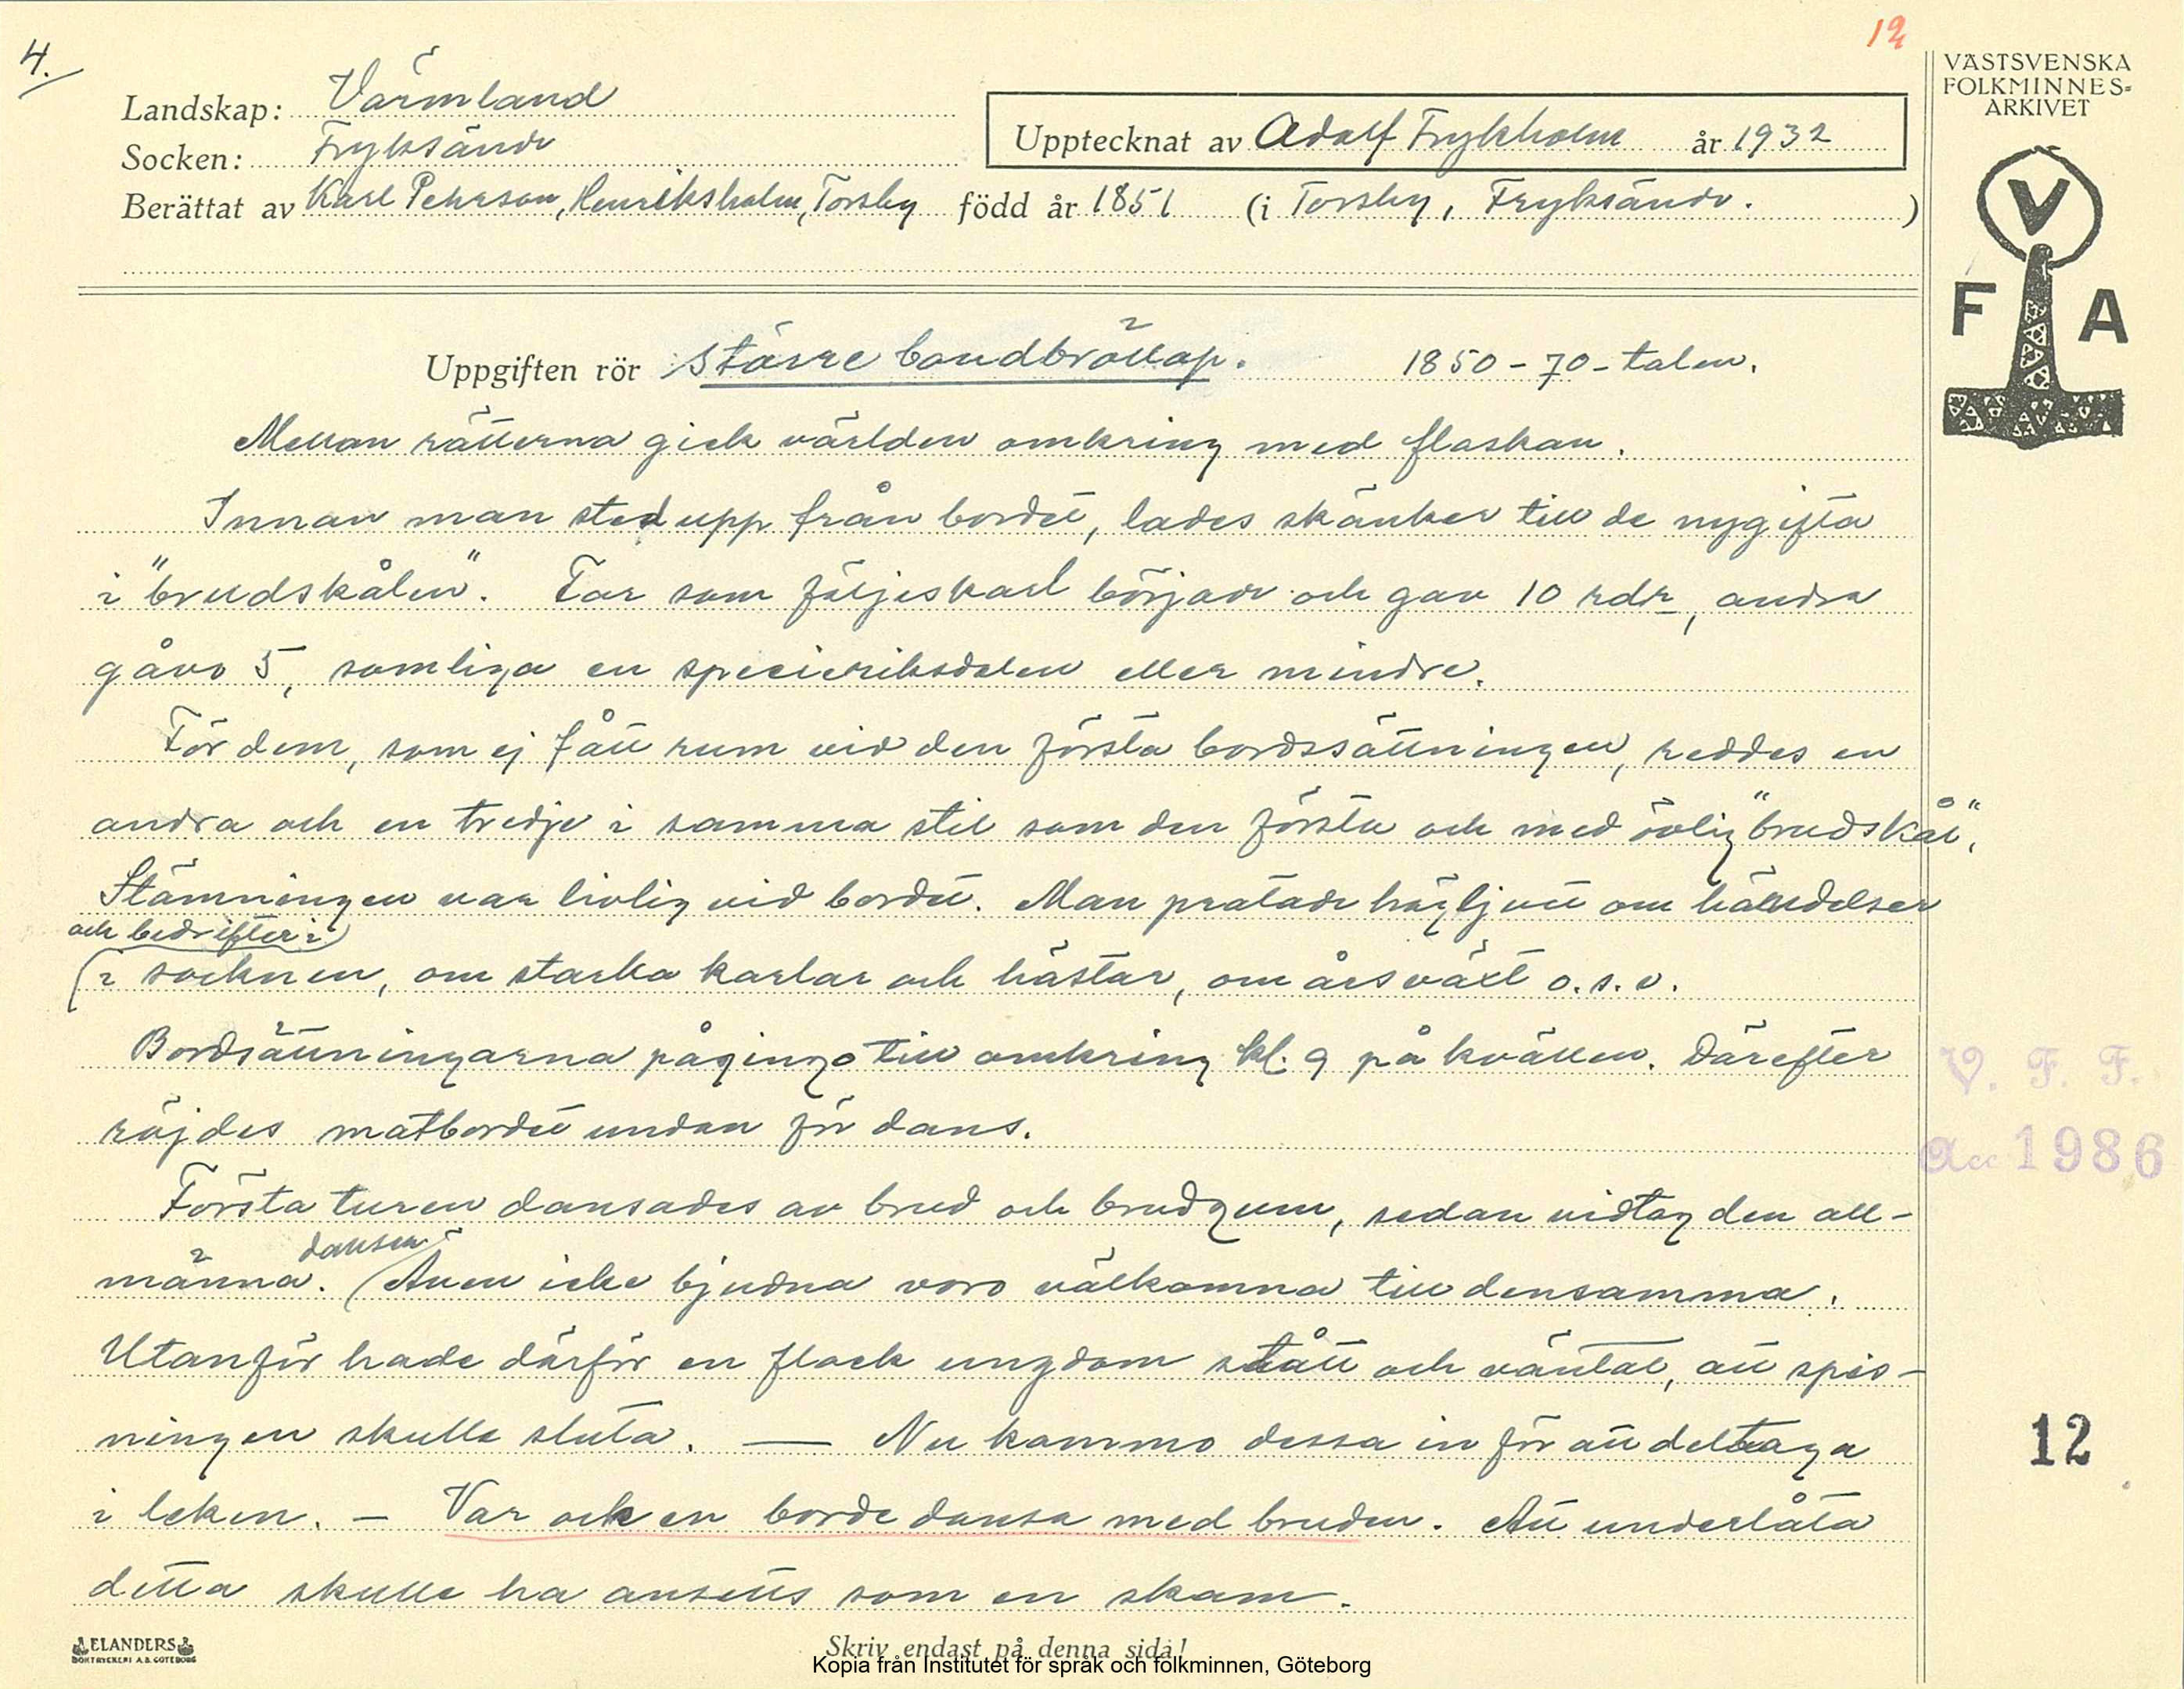 12
4.
VÄSTSVENSKA
FOLKMINNES=
ARKIVET
Landskap: Värmland
Socken: Fryksände
Upptecknat av Adolf Frykholm år 1932
Berättat av Karl Pehrson, Henriksholm, Torsby född år 1851 (i Torsby, Fryksände. )
V
F A
Uppgiften rör större bondbröllop. 1850-70-talen.
Mellan rätterna gick världen omkring med flaskan.
Innan man stod upp från bordet, lades skänker till de nygifta
i "brudskålen". Far som följeskarl började och gav 10 rdr, andra
gåvo 5, somliga en specieriksdaler eller mindre.
För dem, som ej fått rum vid den första bordssättningen, reddes en
andra och en tredje i samma stil som den första och med övlig "brudskål".
Stämningen var livlig vid bordet. Man pratade högljutt om händelser
och bedrifter i
(i socknen, om starka karlar och hästar, om årsväxt o.s.v.
Bordsättningarna pågingo till omkring kl. 9 på kvällen. Därefter
röjdes matbordet undan för dans.
V. F. F.
Acc 1986
Första turen dansades av brud och brudgum, sedan vidtog den all-
dansen
männa. (Även icke bjudna voro välkomna till densamma.
Utanför hade därför en flock ungdom stått och väntat, att spis-
ningen skulle sluta. — Nu kommo dessa in för att deltaga
12
i leken. – Var och en borde dansa med bruden. Att underlåta
detta skulle ha ansetts som en skam.
ELANDERS
BOKTRYCKERI A.B. GÖTEBORG
Skriv endast på denna sida!
Kopia från Institutet för språk och folkminnen, Göteborg